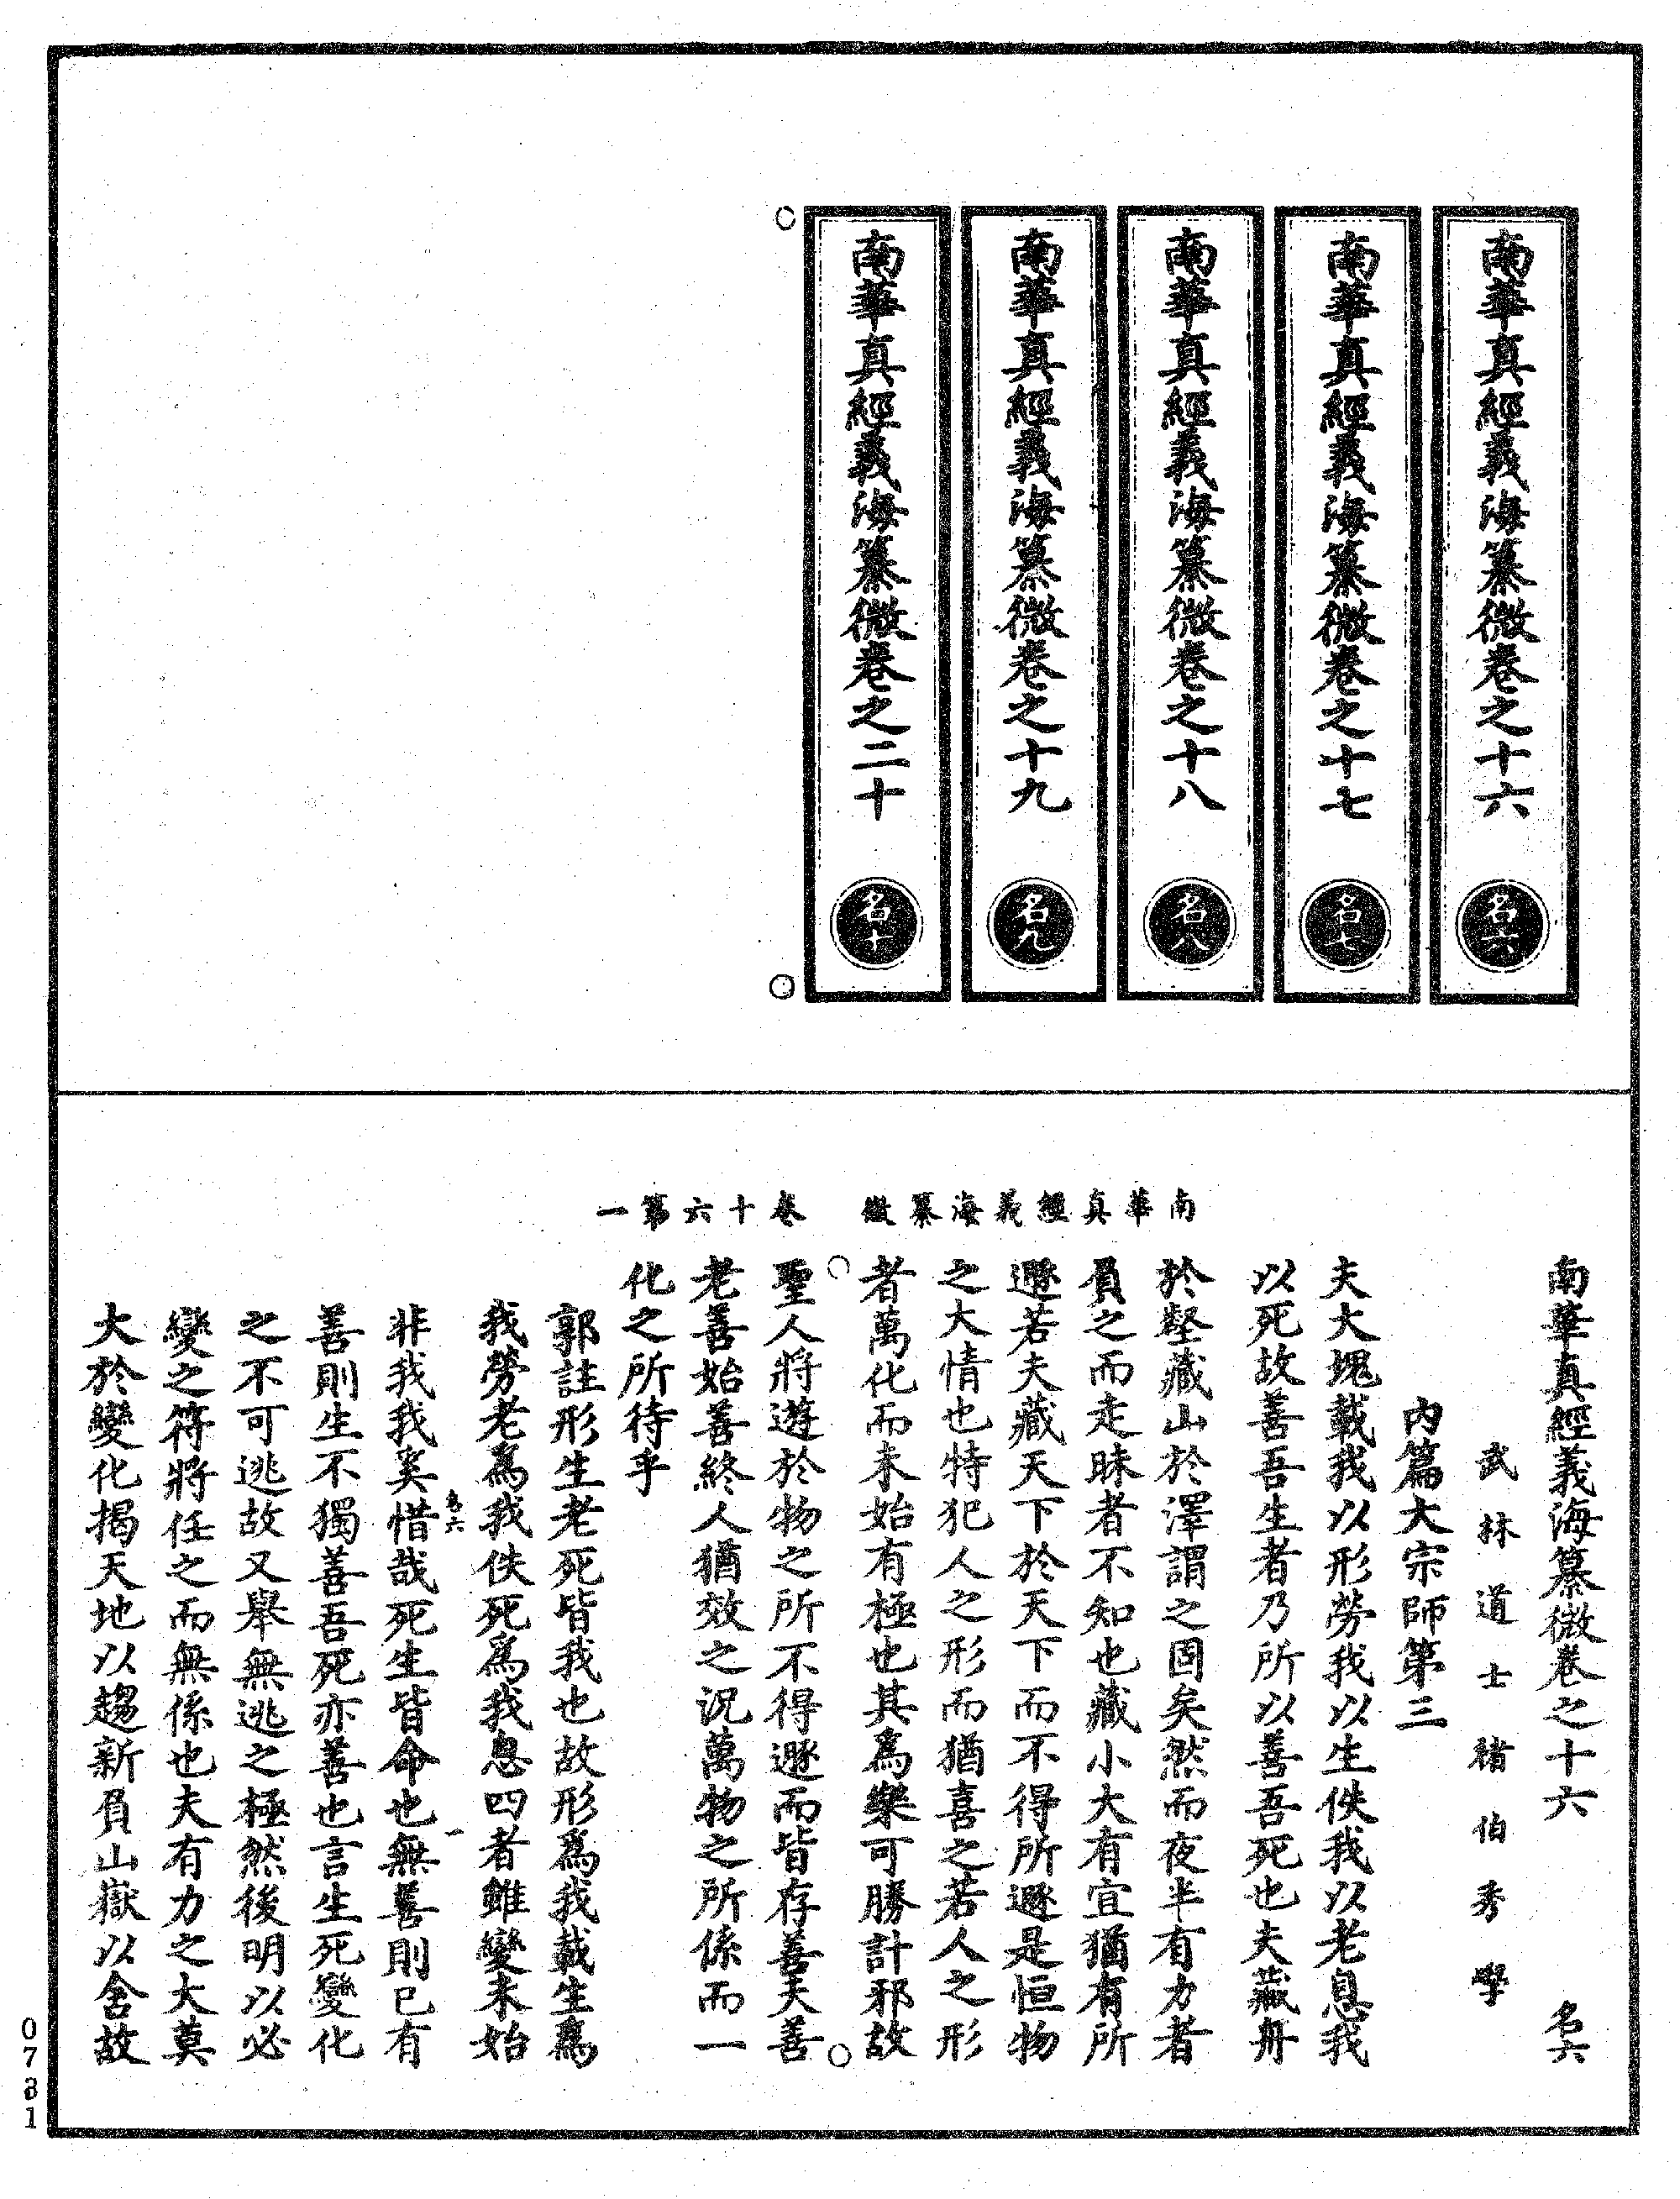 南華真經義海纂微卷之十六
名六
南華真經義海纂微卷之十七
名七
南華真經義海纂微卷之十八
名八
南華真經義海纂微卷之十九
名九
南華真經義海纂微卷之二十
名十
南華真經義海纂微　卷十六第一
南華真經義海纂微卷之十六　名六
武林道士褚伯秀學
內篇大宗師第三
夫大塊載我以形勞我以生佚我以老息我
以死故善吾生者乃所以善吾死也夫藏舟
於壑藏山於澤謂之固矣然而夜半有力者
負之而走昧者不知也藏小大有宜猶有所
遯若夫藏天下於天下而不得所遯是恒物
之大情也特犯人之形而猶喜之若人之形
者萬化而未始有極也其為樂可勝計邪故
聖人將遊於物之所不得遯而皆存善夭善
老善始善終人猶效之況萬物之所係而一
化之所待乎
郭註形生老死皆我也故形為我載生為
我勞老為我佚死為我息四者雖變未始
名六　一
非我我奚惜哉死生皆命也無善則已有
善則生不獨善吾死亦善也言生死變化
之不可逃故又舉無逃之極然後明以必
變之符將任之而無係也夫有力之大莫
大於變化揭天地以趨新負山嶽以舍故
0731